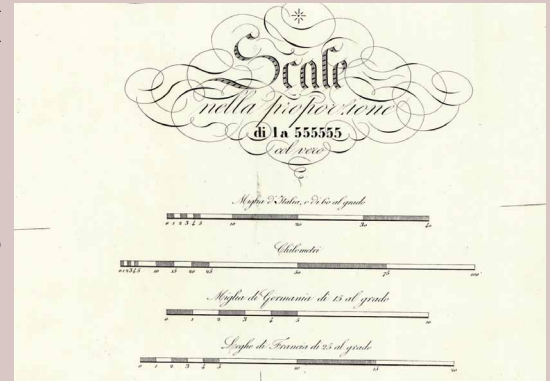 Scale
nella proporzione
di 1 a 555555
col vero
Miglia d'Italia, o di 60 al grado
0 1 2 3 4 5 10 20 30 40
Chilometri
0 1 2 3 4 5 10 15 20 25 50 75 100
Miglia di Germania di 15 al grado
0 1 2 3 4 5 10
Leghe di Francia di 25 al grado
0 1 2 3 4 5 10 15 20